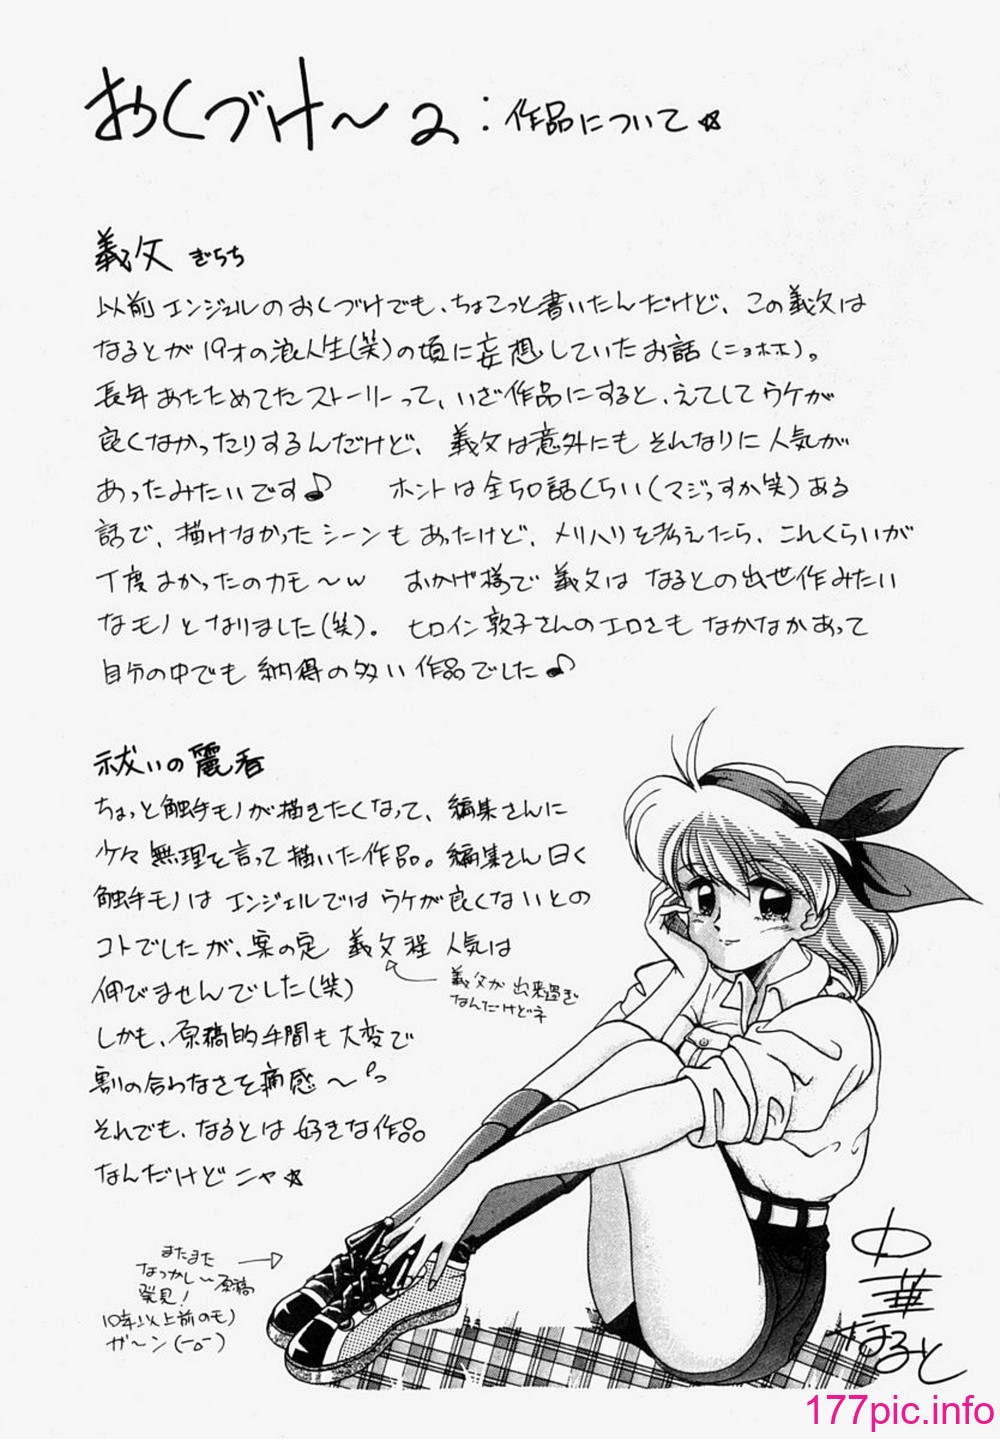 おくづけ〜2:作品について☆
義父 ぎちち
以前エンジェルのおくづけでも、ちょこっと書いたんだけど、この義父は
なるとが19才の浪人生(笑)の頃に妄想していたお話(ニョホホ)。
長年あたためてたストーリーって、いざ作品にすると、えてしてウケが
良くなかったりするんだけど、義父は意外にもそれなりに人気が
あったみたいです♪ ホントは全50話くらい(マジっすか笑)ある
話で、描けなかったシーンもあったけど、メリハリを考えたら、これくらいが
丁度よかったのカモ〜w おかげ様で義父はなるとの出世作みたい
なモノとなりました(笑)。ヒロイン敦子さんのエロさもなかなかあって
自分の中でも納得の多い作品でした♪
祓いの麗香
ちょっと触手モノが描きたくなって、編集さんに
少々無理を言って描いた作品。編集さん曰く
触手モノはエンジェルではウケが良くないとの
コトでしたが、案の定 義父程人気は
伸びませんでした(笑)
義父が出来過ぎ
なんだけどネ
しかも、原稿的手間も大変で
割の合わなさを痛感〜
それでも、なるとは好きな作品
なんだけどニャ☆
またまた
なつかし〜原稿
発見!
10年以上前のモノ
ガ〜ン
中華
なると
177pic.info